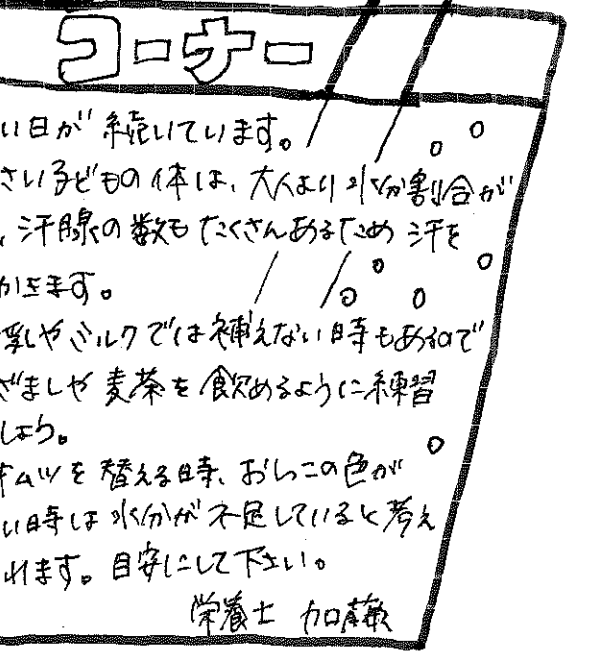 コーナー
い日が続いています。
さい子どもの体は、大人より水分割合が
、汗腺の数もたくさんあるため汗を
かきます。
乳やミルクでは補えない時もあるので
ざましや麦茶を飲めるように練習
しょう。
オムツを替える時、おしっこの色が
い時は水分が不足していると考え
れます。目安にして下さい。
栄養士 加藤